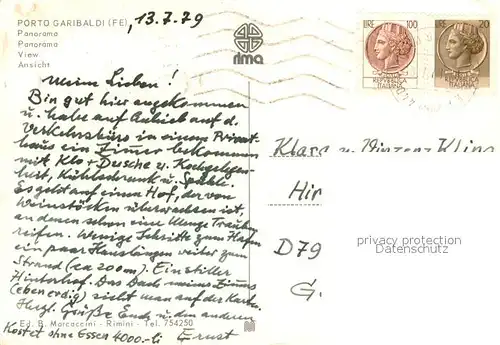 PORTO GARIBALDI (FE), 13.7.79
Panorama
Panorama
View
Ansicht
rima
LIRE 100
LIRE 20
REPUBBLICA ITALIANA
REPUBBLICA ITALIANA
Meine Lieben!
Bin gut hier angekommen
u. habe auf Anhieb auf d.
Verkehrsbüro in einem Privat-
haus ein Zimer bekommen
mit Klo + Dusche u. Kochgelegen-
heit, Kühlschrank u. Spüle.
Es geht auf einen Hof, der von
Weinstöcken überwachsen ist,
an denen schon eine Menge Trauben
reifen. Wenige Schritte zum Hafen
ein paar Hauslängen weiter zum
Strand (ca 200m). Ein stiller
Hinterhof. Das Dach meines Zimers
(ebenerdig) sieht man auf der Karte.
Herzl. Grüße Euch u. den anderen
Ernst
Kostet ohne Essen 4000.-Li
Klara u. Vinzenz Kling
Hir
D79
G.
privacy protection
Datenschutz
Ed. B. Marcaccini - Rimini - Tel. 754250